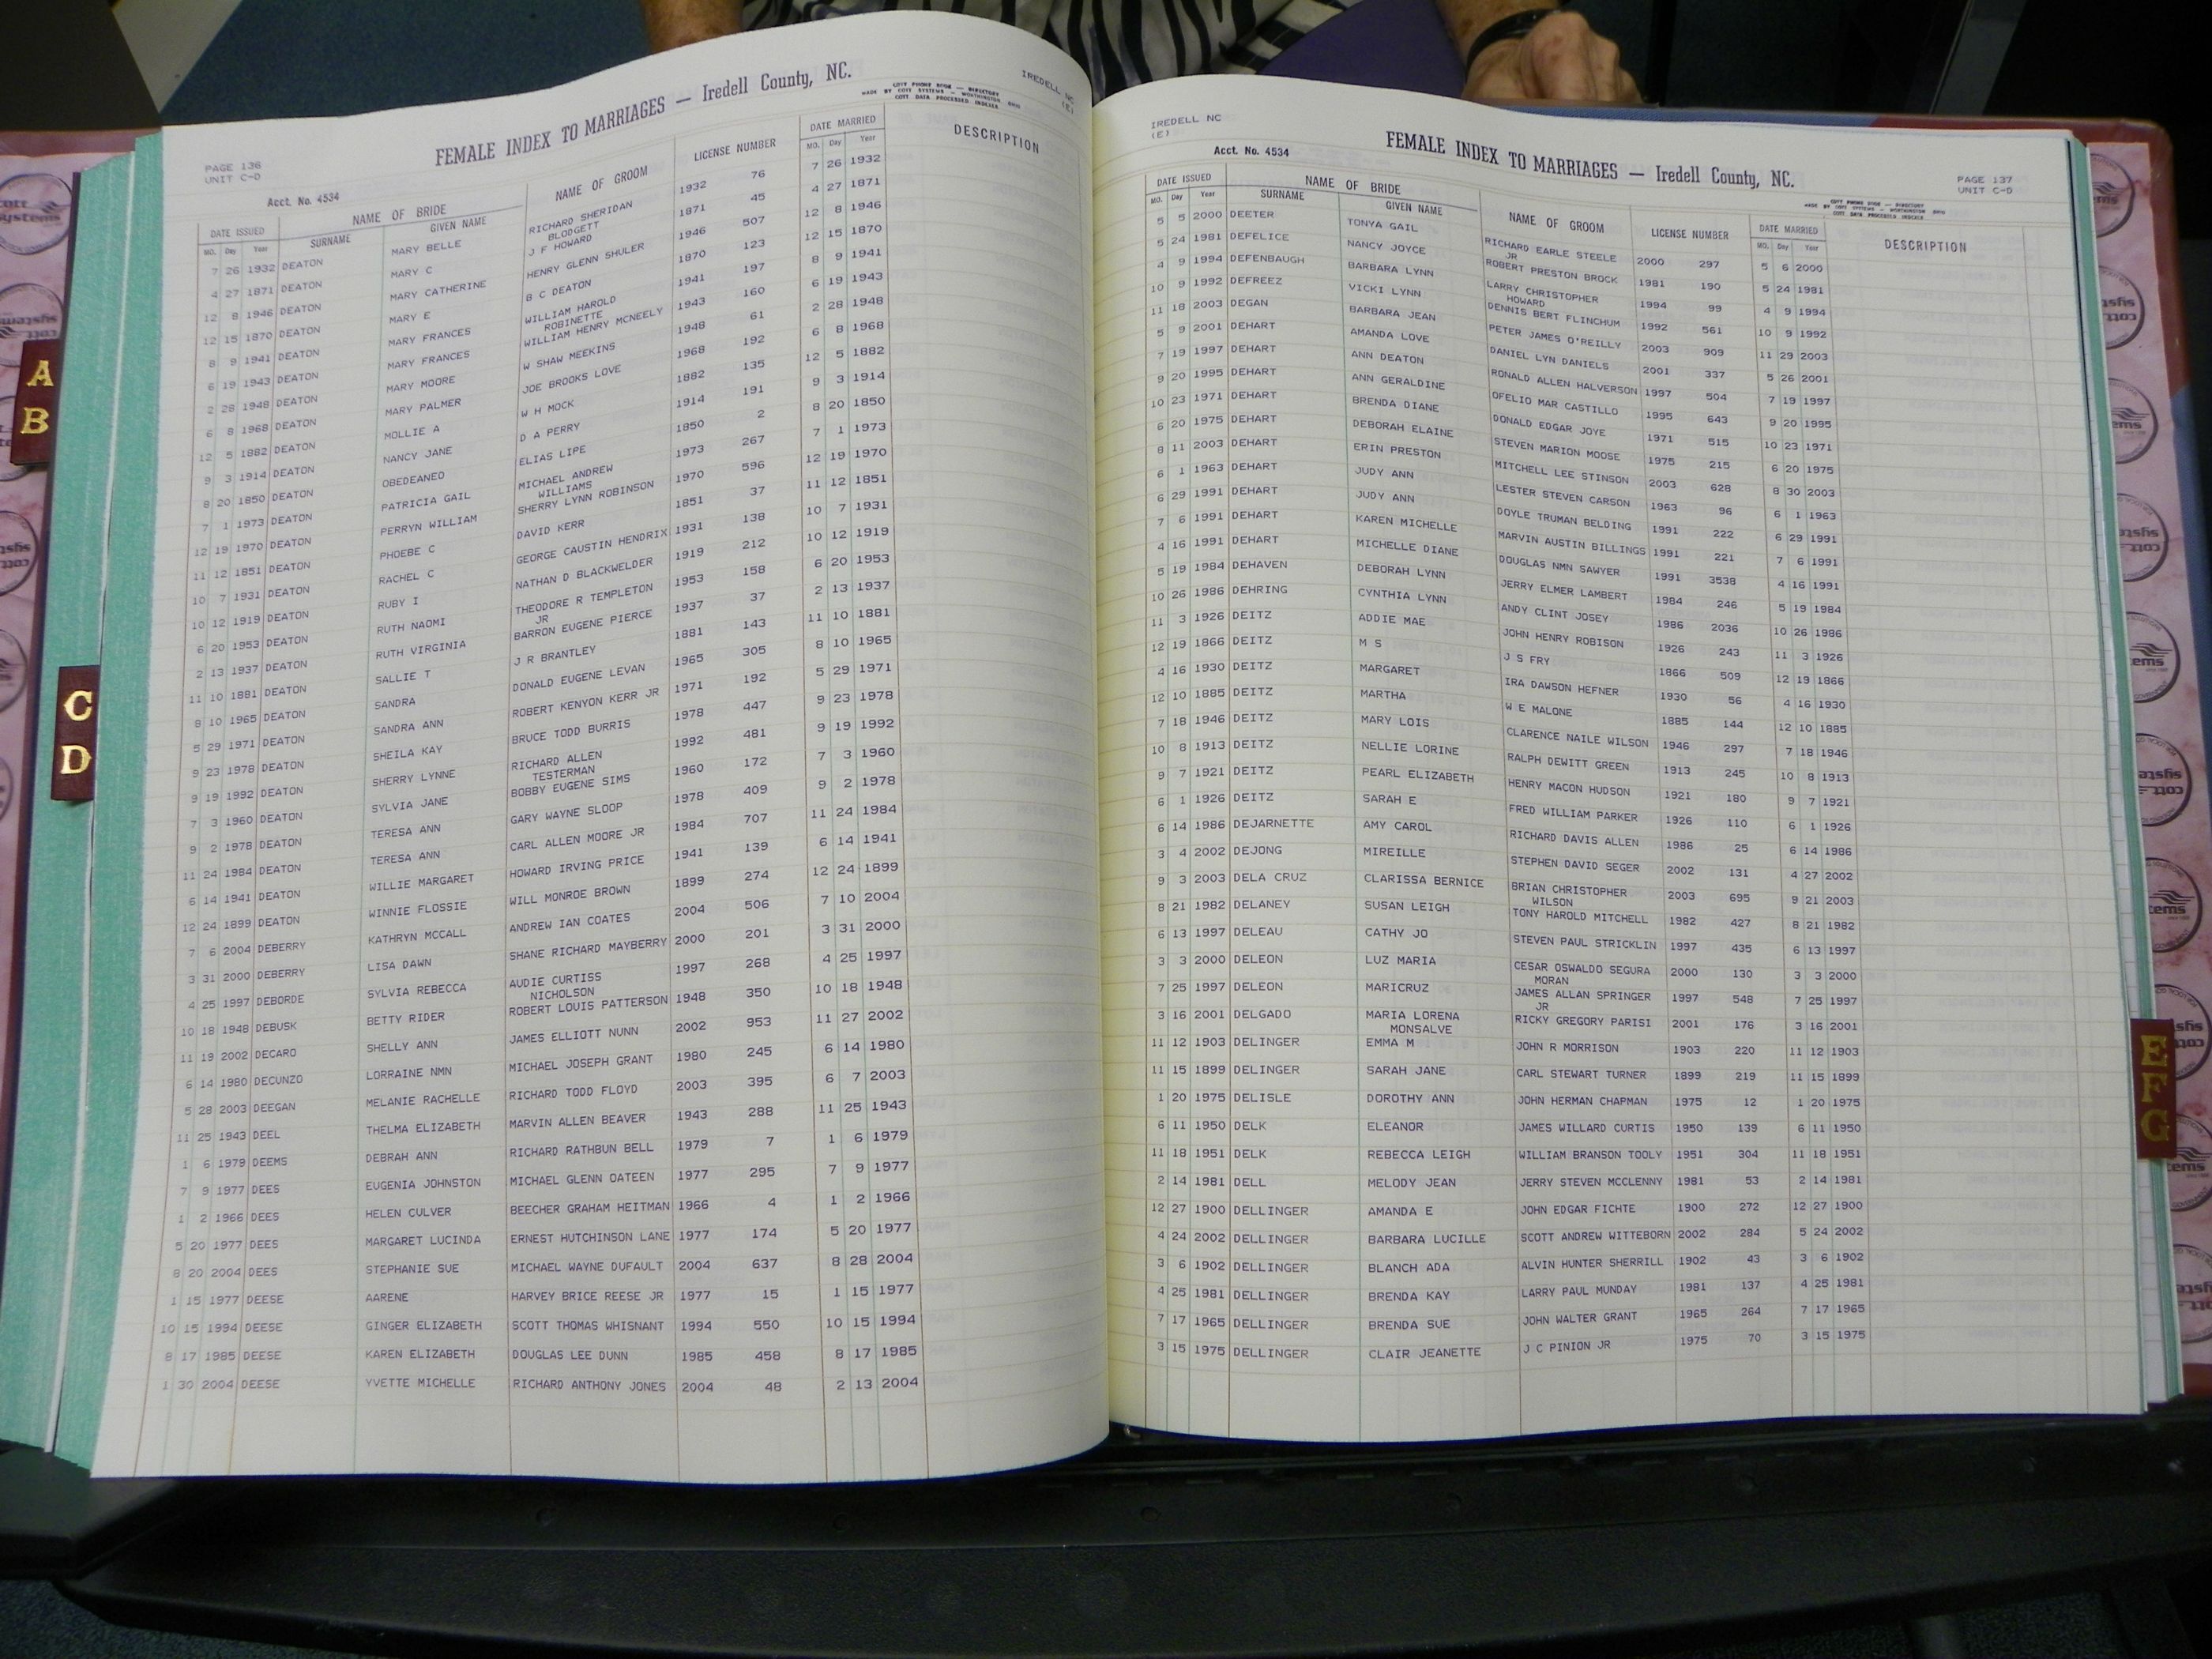 IREDELL NC
(E)
PAGE 136
UNIT C-D
FEMALE INDEX TO MARRIAGES — Iredell County, NC.
COTT PHONE BOOK — DIRECTORY
MADE BY COTT SYSTEMS — WORTHINGTON, OHIO
COTT DATA PROCESSED INDEXES
Acct. No. 4534
DATE ISSUED NAME OF BRIDE NAME OF GROOM LICENSE NUMBER DATE MARRIED DESCRIPTION
MO. Day Year SURNAME GIVEN NAME MO. Day Year
7 26 1932 DEATON MARY BELLE RICHARD SHERIDAN BLODGETT 1932 76 7 26 1932
4 27 1871 DEATON MARY C J F HOWARD 1871 45 4 27 1871
12 8 1946 DEATON MARY CATHERINE HENRY GLENN SHULER 1946 507 12 8 1946
12 15 1870 DEATON MARY E B C DEATON 1870 123 12 15 1870
8 9 1941 DEATON MARY FRANCES WILLIAM HAROLD ROBINETTE 1941 197 8 9 1941
6 19 1943 DEATON MARY FRANCES WILLIAM HENRY MCNEELY 1943 160 6 19 1943
2 28 1948 DEATON MARY MOORE W SHAW MEEKINS 1948 61 2 28 1948
6 8 1968 DEATON MARY PALMER JOE BROOKS LOVE 1968 192 6 8 1968
12 5 1882 DEATON MOLLIE A W H MOCK 1882 135 12 5 1882
9 3 1914 DEATON NANCY JANE D A PERRY 1914 191 9 3 1914
8 20 1850 DEATON OBEDEANEO ELIAS LIPE 1850 2 8 20 1850
7 1 1973 DEATON PATRICIA GAIL MICHAEL ANDREW WILLIAMS 1973 267 7 1 1973
12 19 1970 DEATON PERRYN WILLIAM SHERRY LYNN ROBINSON 1970 596 12 19 1970
11 12 1851 DEATON PHOEBE C DAVID KERR 1851 37 11 12 1851
10 7 1931 DEATON RACHEL C GEORGE CAUSTIN HENDRIX 1931 138 10 7 1931
10 12 1919 DEATON RUBY I NATHAN D BLACKWELDER 1919 212 10 12 1919
6 20 1953 DEATON RUTH NAOMI THEODORE R TEMPLETON JR 1953 158 6 20 1953
2 13 1937 DEATON RUTH VIRGINIA BARRON EUGENE PIERCE 1937 37 2 13 1937
11 10 1881 DEATON SALLIE T J R BRANTLEY 1881 143 11 10 1881
8 10 1965 DEATON SANDRA DONALD EUGENE LEVAN 1965 305 8 10 1965
5 29 1971 DEATON SANDRA ANN ROBERT KENYON KERR JR 1971 192 5 29 1971
9 23 1978 DEATON SHEILA KAY BRUCE TODD BURRIS 1978 447 9 23 1978
9 19 1992 DEATON SHERRY LYNNE RICHARD ALLEN TESTERMAN 1992 481 9 19 1992
7 3 1960 DEATON SYLVIA JANE BOBBY EUGENE SIMS 1960 172 7 3 1960
9 2 1978 DEATON TERESA ANN GARY WAYNE SLOOP 1978 409 9 2 1978
11 24 1984 DEATON TERESA ANN CARL ALLEN MOORE JR 1984 707 11 24 1984
6 14 1941 DEATON WILLIE MARGARET HOWARD IRVING PRICE 1941 139 6 14 1941
12 24 1899 DEATON WINNIE FLOSSIE WILL MONROE BROWN 1899 274 12 24 1899
7 6 2004 DEBERRY KATHRYN MCCALL ANDREW IAN COATES 2004 506 7 10 2004
3 31 2000 DEBERRY LISA DAWN SHANE RICHARD MAYBERRY 2000 201 3 31 2000
4 25 1997 DEBORDE SYLVIA REBECCA AUDIE CURTISS NICHOLSON 1997 268 4 25 1997
10 18 1948 DEBUSK BETTY RIDER ROBERT LOUIS PATTERSON 1948 350 10 18 1948
11 19 2002 DECARO SHELLY ANN JAMES ELLIOTT NUNN 2002 953 11 27 2002
6 14 1980 DECUNZO LORRAINE NMN MICHAEL JOSEPH GRANT 1980 245 6 14 1980
5 28 2003 DEEGAN MELANIE RACHELLE RICHARD TODD FLOYD 2003 395 6 7 2003
11 25 1943 DEEL THELMA ELIZABETH MARVIN ALLEN BEAVER 1943 288 11 25 1943
1 6 1979 DEEMS DEBRAH ANN RICHARD RATHBUN BELL 1979 7 1 6 1979
7 9 1977 DEES EUGENIA JOHNSTON MICHAEL GLENN OATEEN 1977 295 7 9 1977
1 2 1966 DEES HELEN CULVER BEECHER GRAHAM HEITMAN 1966 4 1 2 1966
5 20 1977 DEES MARGARET LUCINDA ERNEST HUTCHINSON LANE 1977 174 5 20 1977
8 20 2004 DEES STEPHANIE SUE MICHAEL WAYNE DUFAULT 2004 637 8 28 2004
1 15 1977 DEESE AARENE HARVEY BRICE REESE JR 1977 15 1 15 1977
10 15 1994 DEESE GINGER ELIZABETH SCOTT THOMAS WHISNANT 1994 550 10 15 1994
8 17 1985 DEESE KAREN ELIZABETH DOUGLAS LEE DUNN 1985 458 8 17 1985
1 30 2004 DEESE YVETTE MICHELLE RICHARD ANTHONY JONES 2004 48 2 13 2004
IREDELL NC
(E)
Acct. No. 4534
FEMALE INDEX TO MARRIAGES — Iredell County, NC.
PAGE 137
UNIT C-D
COTT PHONE BOOK — DIRECTORY
MADE BY COTT SYSTEMS — WORTHINGTON OHIO
COTT DATA PROCESSED INDEXES
DATE ISSUED NAME OF BRIDE NAME OF GROOM LICENSE NUMBER DATE MARRIED DESCRIPTION
MO. Day Year SURNAME GIVEN NAME MO. Day Year
5 5 2000 DEETER TONYA GAIL RICHARD EARLE STEELE JR 2000 297 5 6 2000
5 24 1981 DEFELICE NANCY JOYCE ROBERT PRESTON BROCK 1981 190 5 24 1981
4 9 1994 DEFENBAUGH BARBARA LYNN LARRY CHRISTOPHER HOWARD 1994 99 4 9 1994
10 9 1992 DEFREEZ VICKI LYNN DENNIS BERT FLINCHUM 1992 561 10 9 1992
11 18 2003 DEGAN BARBARA JEAN PETER JAMES O'REILLY 2003 909 11 29 2003
5 9 2001 DEHART AMANDA LOVE DANIEL LYN DANIELS 2001 337 5 26 2001
7 19 1997 DEHART ANN DEATON RONALD ALLEN HALVERSON 1997 504 7 19 1997
9 20 1995 DEHART ANN GERALDINE OFELIO MAR CASTILLO 1995 643 9 20 1995
10 23 1971 DEHART BRENDA DIANE DONALD EDGAR JOYE 1971 515 10 23 1971
6 20 1975 DEHART DEBORAH ELAINE STEVEN MARION MOOSE 1975 215 6 20 1975
8 11 2003 DEHART ERIN PRESTON MITCHELL LEE STINSON 2003 628 8 30 2003
6 1 1963 DEHART JUDY ANN LESTER STEVEN CARSON 1963 96 6 1 1963
6 29 1991 DEHART JUDY ANN DOYLE TRUMAN BELDING 1991 222 6 29 1991
7 6 1991 DEHART KAREN MICHELLE MARVIN AUSTIN BILLINGS 1991 221 7 6 1991
4 16 1991 DEHART MICHELLE DIANE DOUGLAS NMN SAWYER 1991 3538 4 16 1991
5 19 1984 DEHAVEN DEBORAH LYNN JERRY ELMER LAMBERT 1984 246 5 19 1984
10 26 1986 DEHRING CYNTHIA LYNN ANDY CLINT JOSEY 1986 2036 10 26 1986
11 3 1926 DEITZ ADDIE MAE JOHN HENRY ROBISON 1926 243 11 3 1926
12 19 1866 DEITZ M S J S FRY 1866 509 12 19 1866
4 16 1930 DEITZ MARGARET IRA DAWSON HEFNER 1930 56 4 16 1930
12 10 1885 DEITZ MARTHA W E MALONE 1885 144 12 10 1885
7 18 1946 DEITZ MARY LOIS CLARENCE NAILE WILSON 1946 297 7 18 1946
10 8 1913 DEITZ NELLIE LORINE RALPH DEWITT GREEN 1913 245 10 8 1913
9 7 1921 DEITZ PEARL ELIZABETH HENRY MACON HUDSON 1921 180 9 7 1921
6 1 1926 DEITZ SARAH E FRED WILLIAM PARKER 1926 110 6 1 1926
6 14 1986 DEJARNETTE AMY CAROL RICHARD DAVIS ALLEN 1986 25 6 14 1986
3 4 2002 DEJONG MIREILLE STEPHEN DAVID SEGER 2002 131 4 27 2002
9 3 2003 DELA CRUZ CLARISSA BERNICE BRIAN CHRISTOPHER WILSON 2003 695 9 21 2003
8 21 1982 DELANEY SUSAN LEIGH TONY HAROLD MITCHELL 1982 427 8 21 1982
6 13 1997 DELEAU CATHY JO STEVEN PAUL STRICKLIN 1997 435 6 13 1997
3 3 2000 DELEON LUZ MARIA CESAR OSWALDO SEGURA MORAN 2000 130 3 3 2000
7 25 1997 DELEON MARICRUZ JAMES ALLAN SPRINGER JR 1997 548 7 25 1997
3 16 2001 DELGADO MARIA LORENA MONSALVE RICKY GREGORY PARISI 2001 176 3 16 2001
11 12 1903 DELINGER EMMA M JOHN R MORRISON 1903 220 11 12 1903
11 15 1899 DELINGER SARAH JANE CARL STEWART TURNER 1899 219 11 15 1899
1 20 1975 DELISLE DOROTHY ANN JOHN HERMAN CHAPMAN 1975 12 1 20 1975
6 11 1950 DELK ELEANOR JAMES WILLARD CURTIS 1950 139 6 11 1950
11 18 1951 DELK REBECCA LEIGH WILLIAM BRANSON TOOLY 1951 304 11 18 1951
2 14 1981 DELL MELODY JEAN JERRY STEVEN MCCLENNY 1981 53 2 14 1981
12 27 1900 DELLINGER AMANDA E JOHN EDGAR FICHTE 1900 272 12 27 1900
4 24 2002 DELLINGER BARBARA LUCILLE SCOTT ANDREW WITTEBORN 2002 284 5 24 2002
3 6 1902 DELLINGER BLANCH ADA ALVIN HUNTER SHERRILL 1902 43 3 6 1902
4 25 1981 DELLINGER BRENDA KAY LARRY PAUL MUNDAY 1981 137 4 25 1981
7 17 1965 DELLINGER BRENDA SUE JOHN WALTER GRANT 1965 264 7 17 1965
3 15 1975 DELLINGER CLAIR JEANETTE J C PINION JR 1975 70 3 15 1975
A
B
C
D
E
F
G